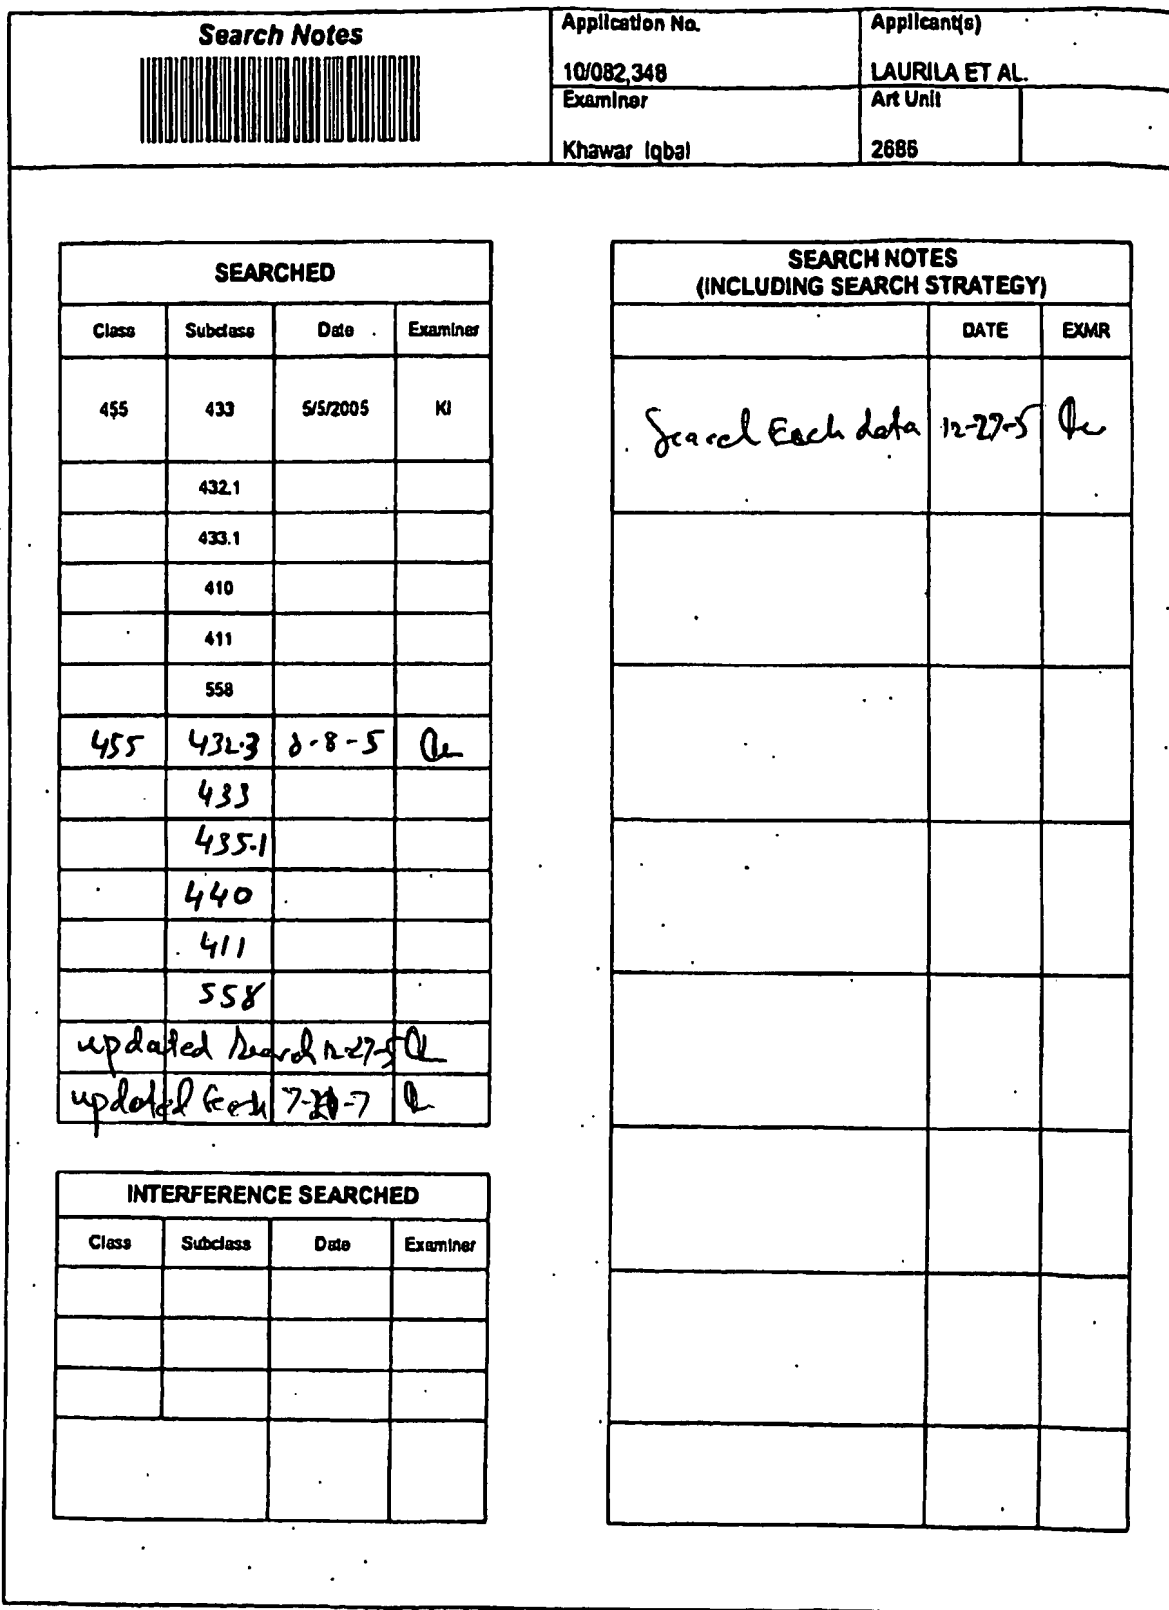 Search Notes
Application No.
Applicant(s)
10/082,348
LAURILA ET AL.
Examiner
Art Unit
Khawar Iqbal
2686
SEARCHED
Class Subclass Date Examiner
455 433 5/5/2005 KI
432.1
433.1
410
411
558
455 432.3 8-8-5
433
435.1
440
411
558
updated Search 12-27-5
updated 7- -7
INTERFERENCE SEARCHED
Class Subclass Date Examiner
SEARCH NOTES
(INCLUDING SEARCH STRATEGY)
DATE EXMR
Search Each data 12-27-5